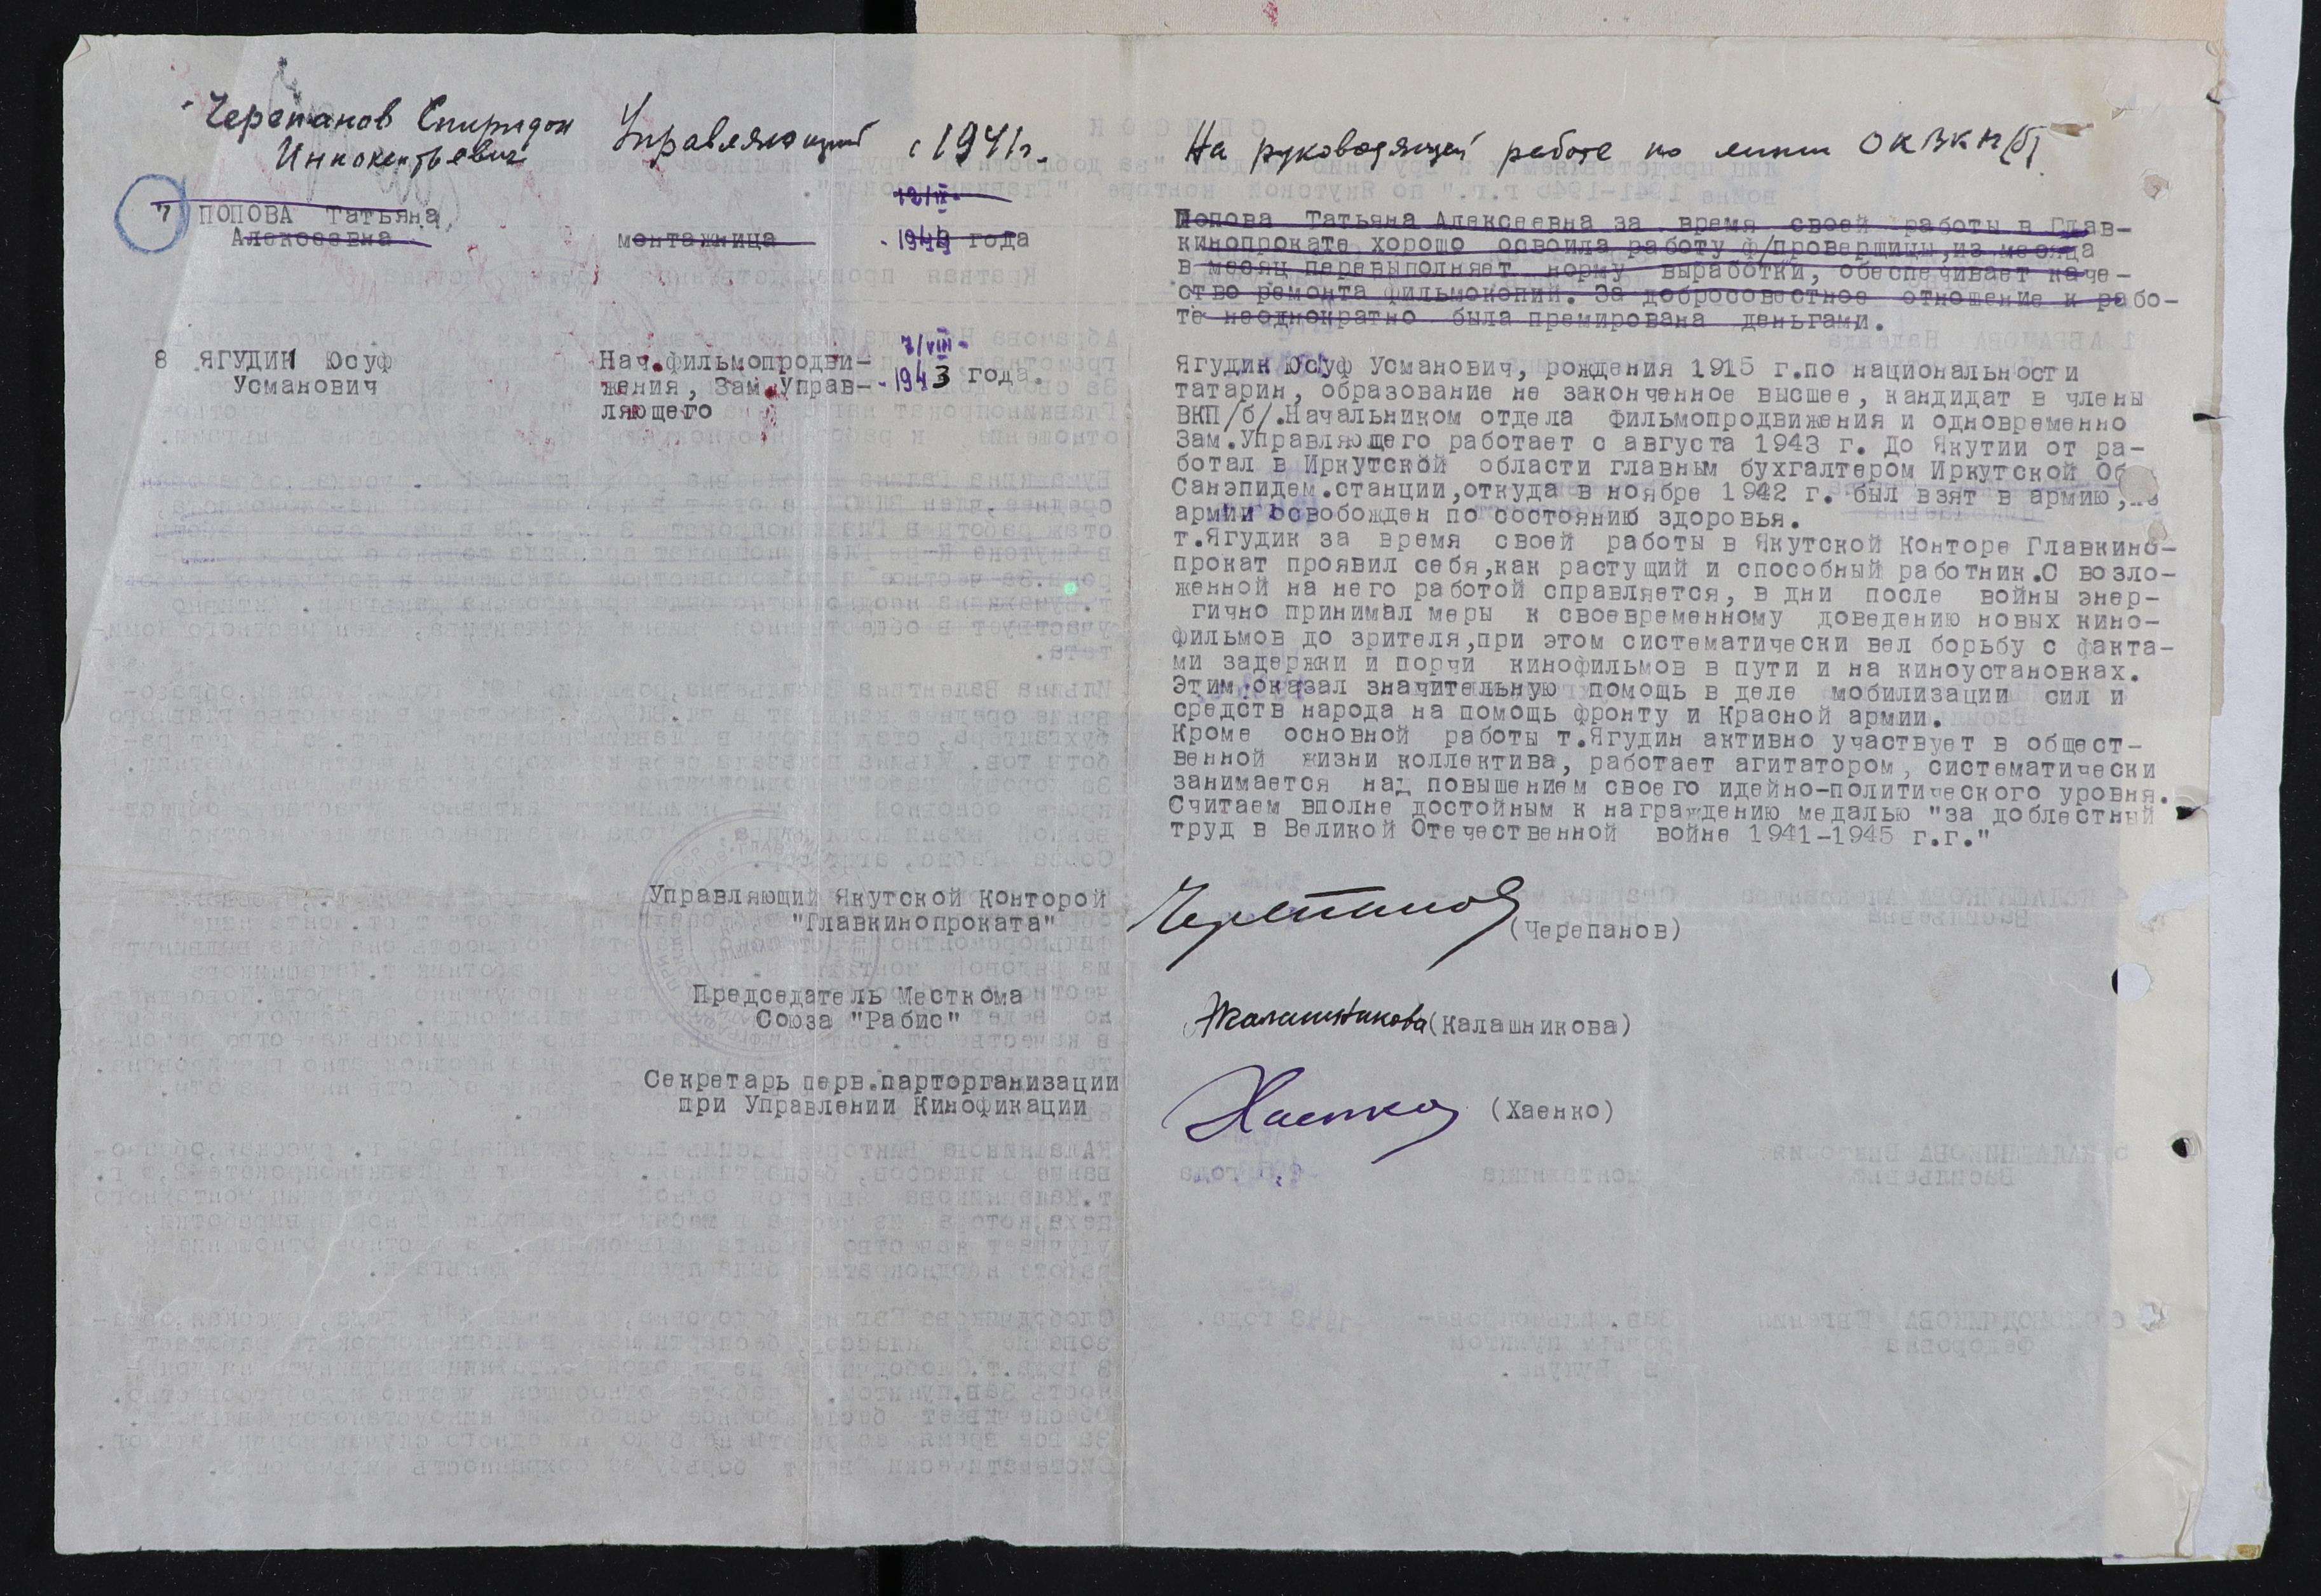 Черепанов Спиридон
Иннокентьевич
Управляющий
с 1941 г.
На руководящей работе по линии ОК ВКП(б)
7 ПОПОВА Татьяна
Алексеевна
монтажница
1944 года
Попова Татьяна Алексеевна за время своей работы в Глав-
кинопрокате хорошо освоила работу ф/проверщицы,из месяца
в месяц перевыполняет норму выработки, обеспечивает каче-
ство ремонта фильмокопий. За добросовестное отношение к рабо-
те неоднократно была премирована деньгами.
8 ЯГУДИН Юсуф
Усманович
Нач.фильмопродви-
жения, Зам.Управ-
ляющего
7/VIII-
1943 года.
Ягудин Юсуф Усманович, рождения 1915 г.по национальности
татарин, образование не законченное высшее, кандидат в члены
ВКП/б/.Начальником отдела фильмопродвижения и одновременно
Зам.Управляющего работает с августа 1943 г. До Якутии от ра-
ботал в Иркутской области главным бухгалтером Иркутской Об
Санэпидем.станции,откуда в ноябре 1942 г. был взят в армию,
армии освобожден по состоянию здоровья.
т.Ягудин за время своей работы в Якутской Конторе Главкино-
прокат проявил себя,как растущий и способный работник.С возло-
женной на него работой справляется, в дни после войны энер-
гично принимал меры к своевременному доведению новых кино-
фильмов до зрителя,при этом систематически вел борьбу с факта-
ми задержки и порчи кинофильмов в пути и на киноустановках.
Этим оказал значительную помощь в деле мобилизации сил и
средств народа на помощь фронту и Красной армии.
Кроме основной работы т.Ягудин активно участвует в общест-
венной жизни коллектива, работает агитатором, систематически
занимается над повышением своего идейно-политического уровня.
Считаем вполне достойным к награждению медалью "за доблестный
труд в Великой Отечественной войне 1941-1945 г.г."
Управляющий Якутской Конторой
"Главкинопроката"
Черепанов
(Черепанов)
Председатель Месткома
Союза "Рабис"
Калашникова (Калашникова)
Секретарь перв.парторганизации
при Управлении Кинофикации
Хаенко (Хаенко)